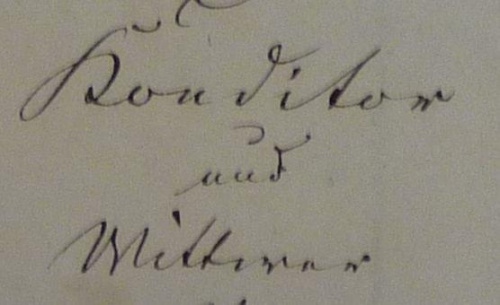 Konditor
und
Wittwer